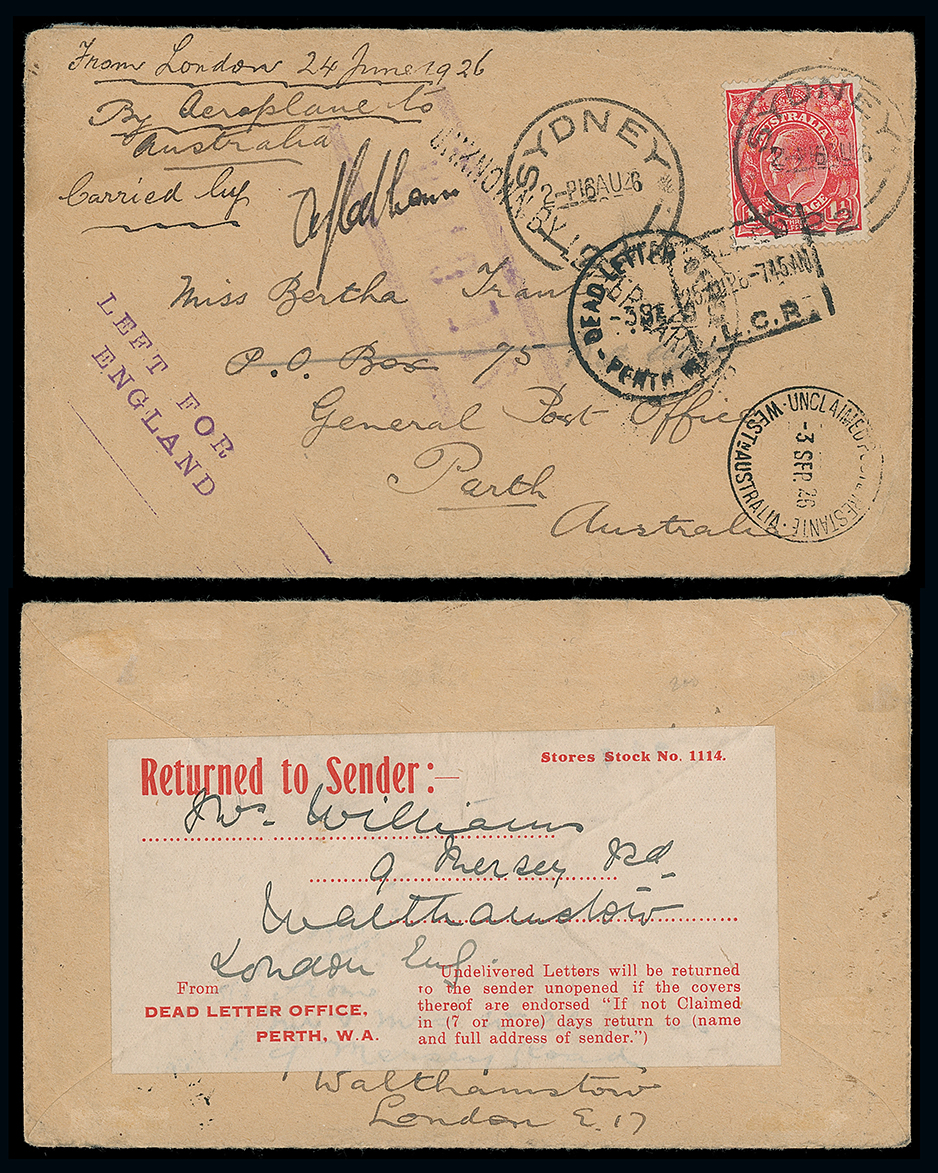 From London 24 June 1926
By Aeroplane to
Australia
Carried by
UNKNOWN BY
SYDNEY
2-P16AU26
SYDNEY
AUSTRALIA
Miss Bertha
P.O. Box 75
General Post Office
Perth
Australia
LEFT FOR
ENGLAND
DEAD LETTER
-3SE
PERTH W.A.
-7.45AM
L.C.R.
UNCLAIMED POSTE RESTANTE
-3 SEP. 26
WESTN AUSTRALIA
Returned to Sender:—
Stores Stock No. 1114.
Mrs. Williams
9 Mersey Rd
Walthamstow
London Eng.
From
DEAD LETTER OFFICE,
PERTH, W.A.
Undelivered Letters will be returned
to the sender unopened if the covers
thereof are endorsed "If not Claimed
in (7 or more) days return to (name
and full address of sender.")
Walthamstow
London E. 17